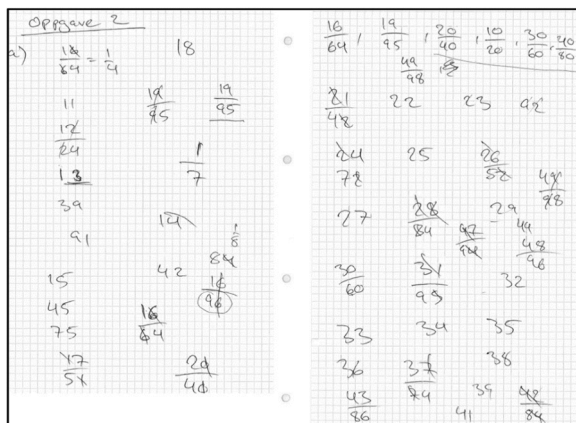 Oppgave 2
a) 16/64 = 1/4 18
11 19/95 19/95
12/24
13 1/7
39
91 14
1/8
84
15 42 16/96
45 16/64
75
17/51 20/40
16/64 , 19/95 , 20/40 , 10/20 , 30/60 , 40/80
49/98
21/42 22 23 92
24 25 26/52
72 49/98
27 28/84 29
47/94 44
48/96
30/60 31/93 32
33 34 35
36 37/74 38
43/86 39 42/84
41